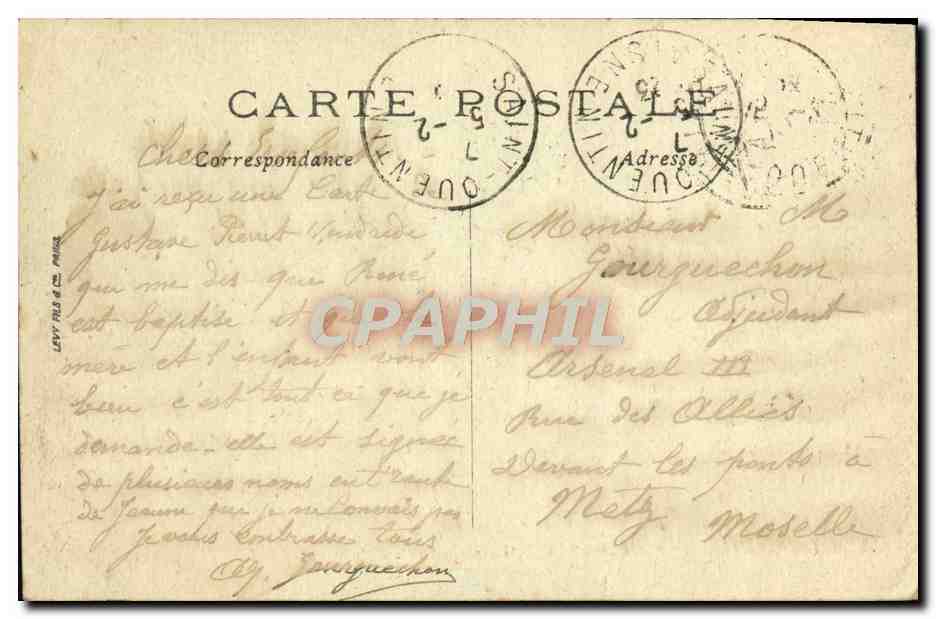 CARTE POSTALE
Correspondance
Adresse
SAINT-QUENTIN
7
5 -2
SAINT-QUENTIN AISNE
7
-2
J'ai reçu une Carte
Gustave
qui me dis que René
est baptise et
mère et l'enfant vont
bien c'est tout ci que je
demande - elle est signée
de plusieurs noms
de que je ne Connais pas
Je vous embrasse tous
Gourguechon
Monsieur M
Gourguechon
Adjudant
Arsenal III
Rue des Alliés
Devant les ponts à
Metz Moselle
LEVY FILS & Cie PARIS
CPAPHIL